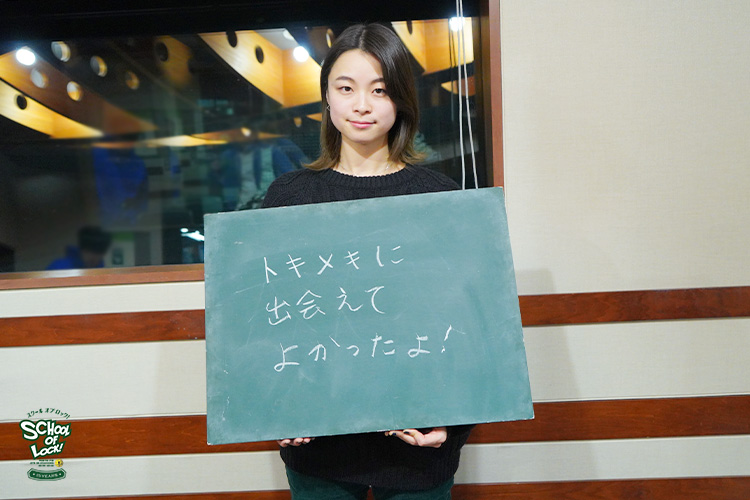 トキメキに
出会えて
よかったよ!
スクールオブロック!
SCHOOL
OF
LOCK!